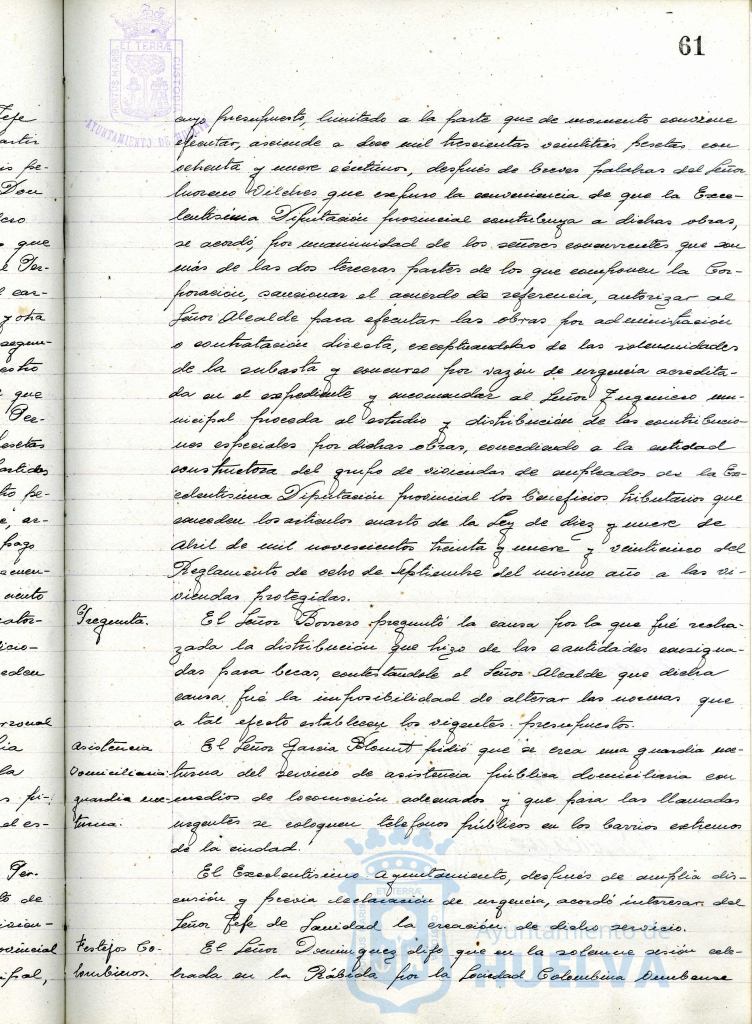 61
PORTUS MARIS ET TERRÆ CUSTODIA
AYUNTAMIENTO DE HUELVA
cuyo presupuesto, limitado a la parte que de momento conviene
ejecutar, asciende a doce mil trescientas veintitres pesetas con
ochenta y nueve céntimos, después de breves palabras del Señor
Moreno Vilches que expuso la conveniencia de que la Exce-
lentísima Diputación provincial contribuya a dichas obras,
se acordó, por unanimidad de los señores concurrentes que son
más de las dos terceras partes de los que componen la Cor-
poración, sancionar el acuerdo de referencia, autorizar al
Señor Alcalde para ejecutar las obras por administración
o contratación directa, exceptuandolas de las solemnidades
de la subasta y concurso por razón de urgencia acredita-
da en el expediente y encomendar al Señor Ingeniero mu-
nicipal proceda al estudio y distribución de las contribucio-
nes especiales por dichas obras, concediendo a la entidad
constructora del grupo de viviendas de empleados de la Ex-
celentísima Diputación provincial los beneficios tributarios que
conceden los artículos cuarto de la Ley de diez y nueve de
Abril de mil novecientos treinta y nueve y veinticinco del
Reglamento de ocho de Septiembre del mismo año a las vi-
viendas protegidas.
Pregunta. El Señor Borrero preguntó la causa por la que fué recha-
zada la distribución que hizo de las cantidades consigna-
das para becas, contestandole el Señor Alcalde que dicha
causa fué la imposibilidad de alterar las normas que
a tal efecto establecen los vigentes presupuestos.
Asistencia El Señor García pidió que se crea una guardia noc-
domiciliaria: turna del servicio de asistencia pública domiciliaria con
guardia noc- medios de locomoción adecuados y que para las llamadas
turna. urgentes se coloquen telefonos públicos en los barrios extremos
de la ciudad.
El Excelentísimo Ayuntamiento, después de amplia dis-
cusión y previa declaración de urgencia, acordó interesar del
Señor Jefe de Sanidad la creación de dicho servicio.
Festejos Co- El Señor Dominguez dijo que en la solemne sesión cele-
lombinos. brada en la Rábida por la Sociedad Colombina Onubense
Ayuntamiento de
HUELVA